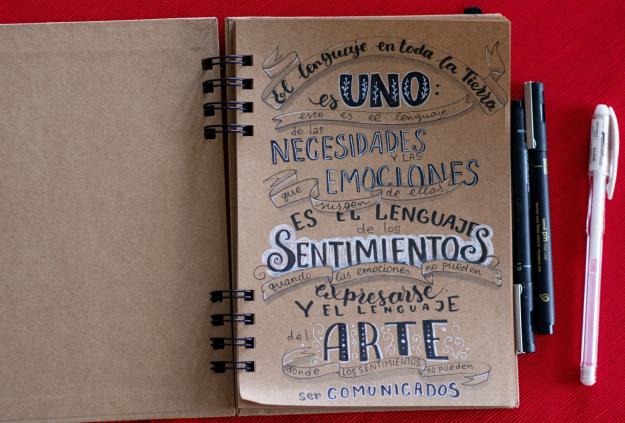 El lenguaje en toda la Tierra
es UNO:
este es el lenguaje
de las
NECESIDADES
Y LAS
EMOCIONES
que surgen de ellas,
ES EL LENGUAJE
de los
SENTIMIENTOS
quando las emociones no pueden
expresarse.
Y EL LENGUAJE
del ARTE
donde LOS SENTIMIENTOS no pueden
ser COMUNICADOS